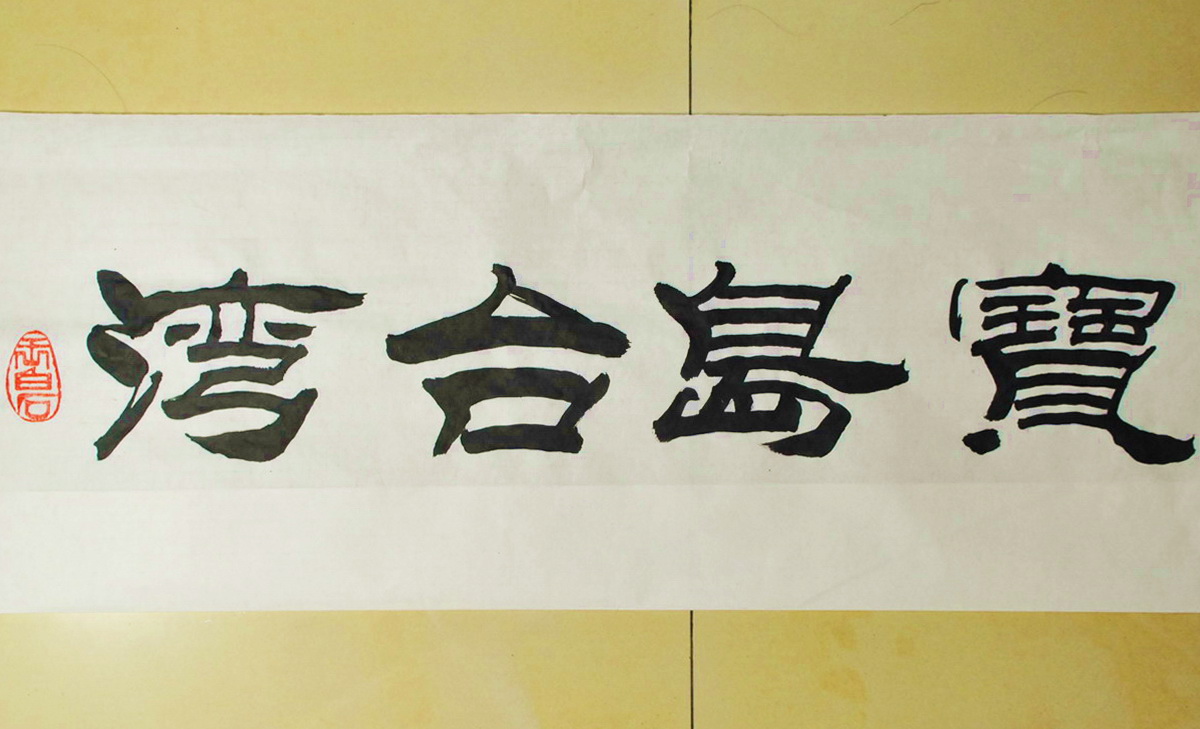 寶島台湾